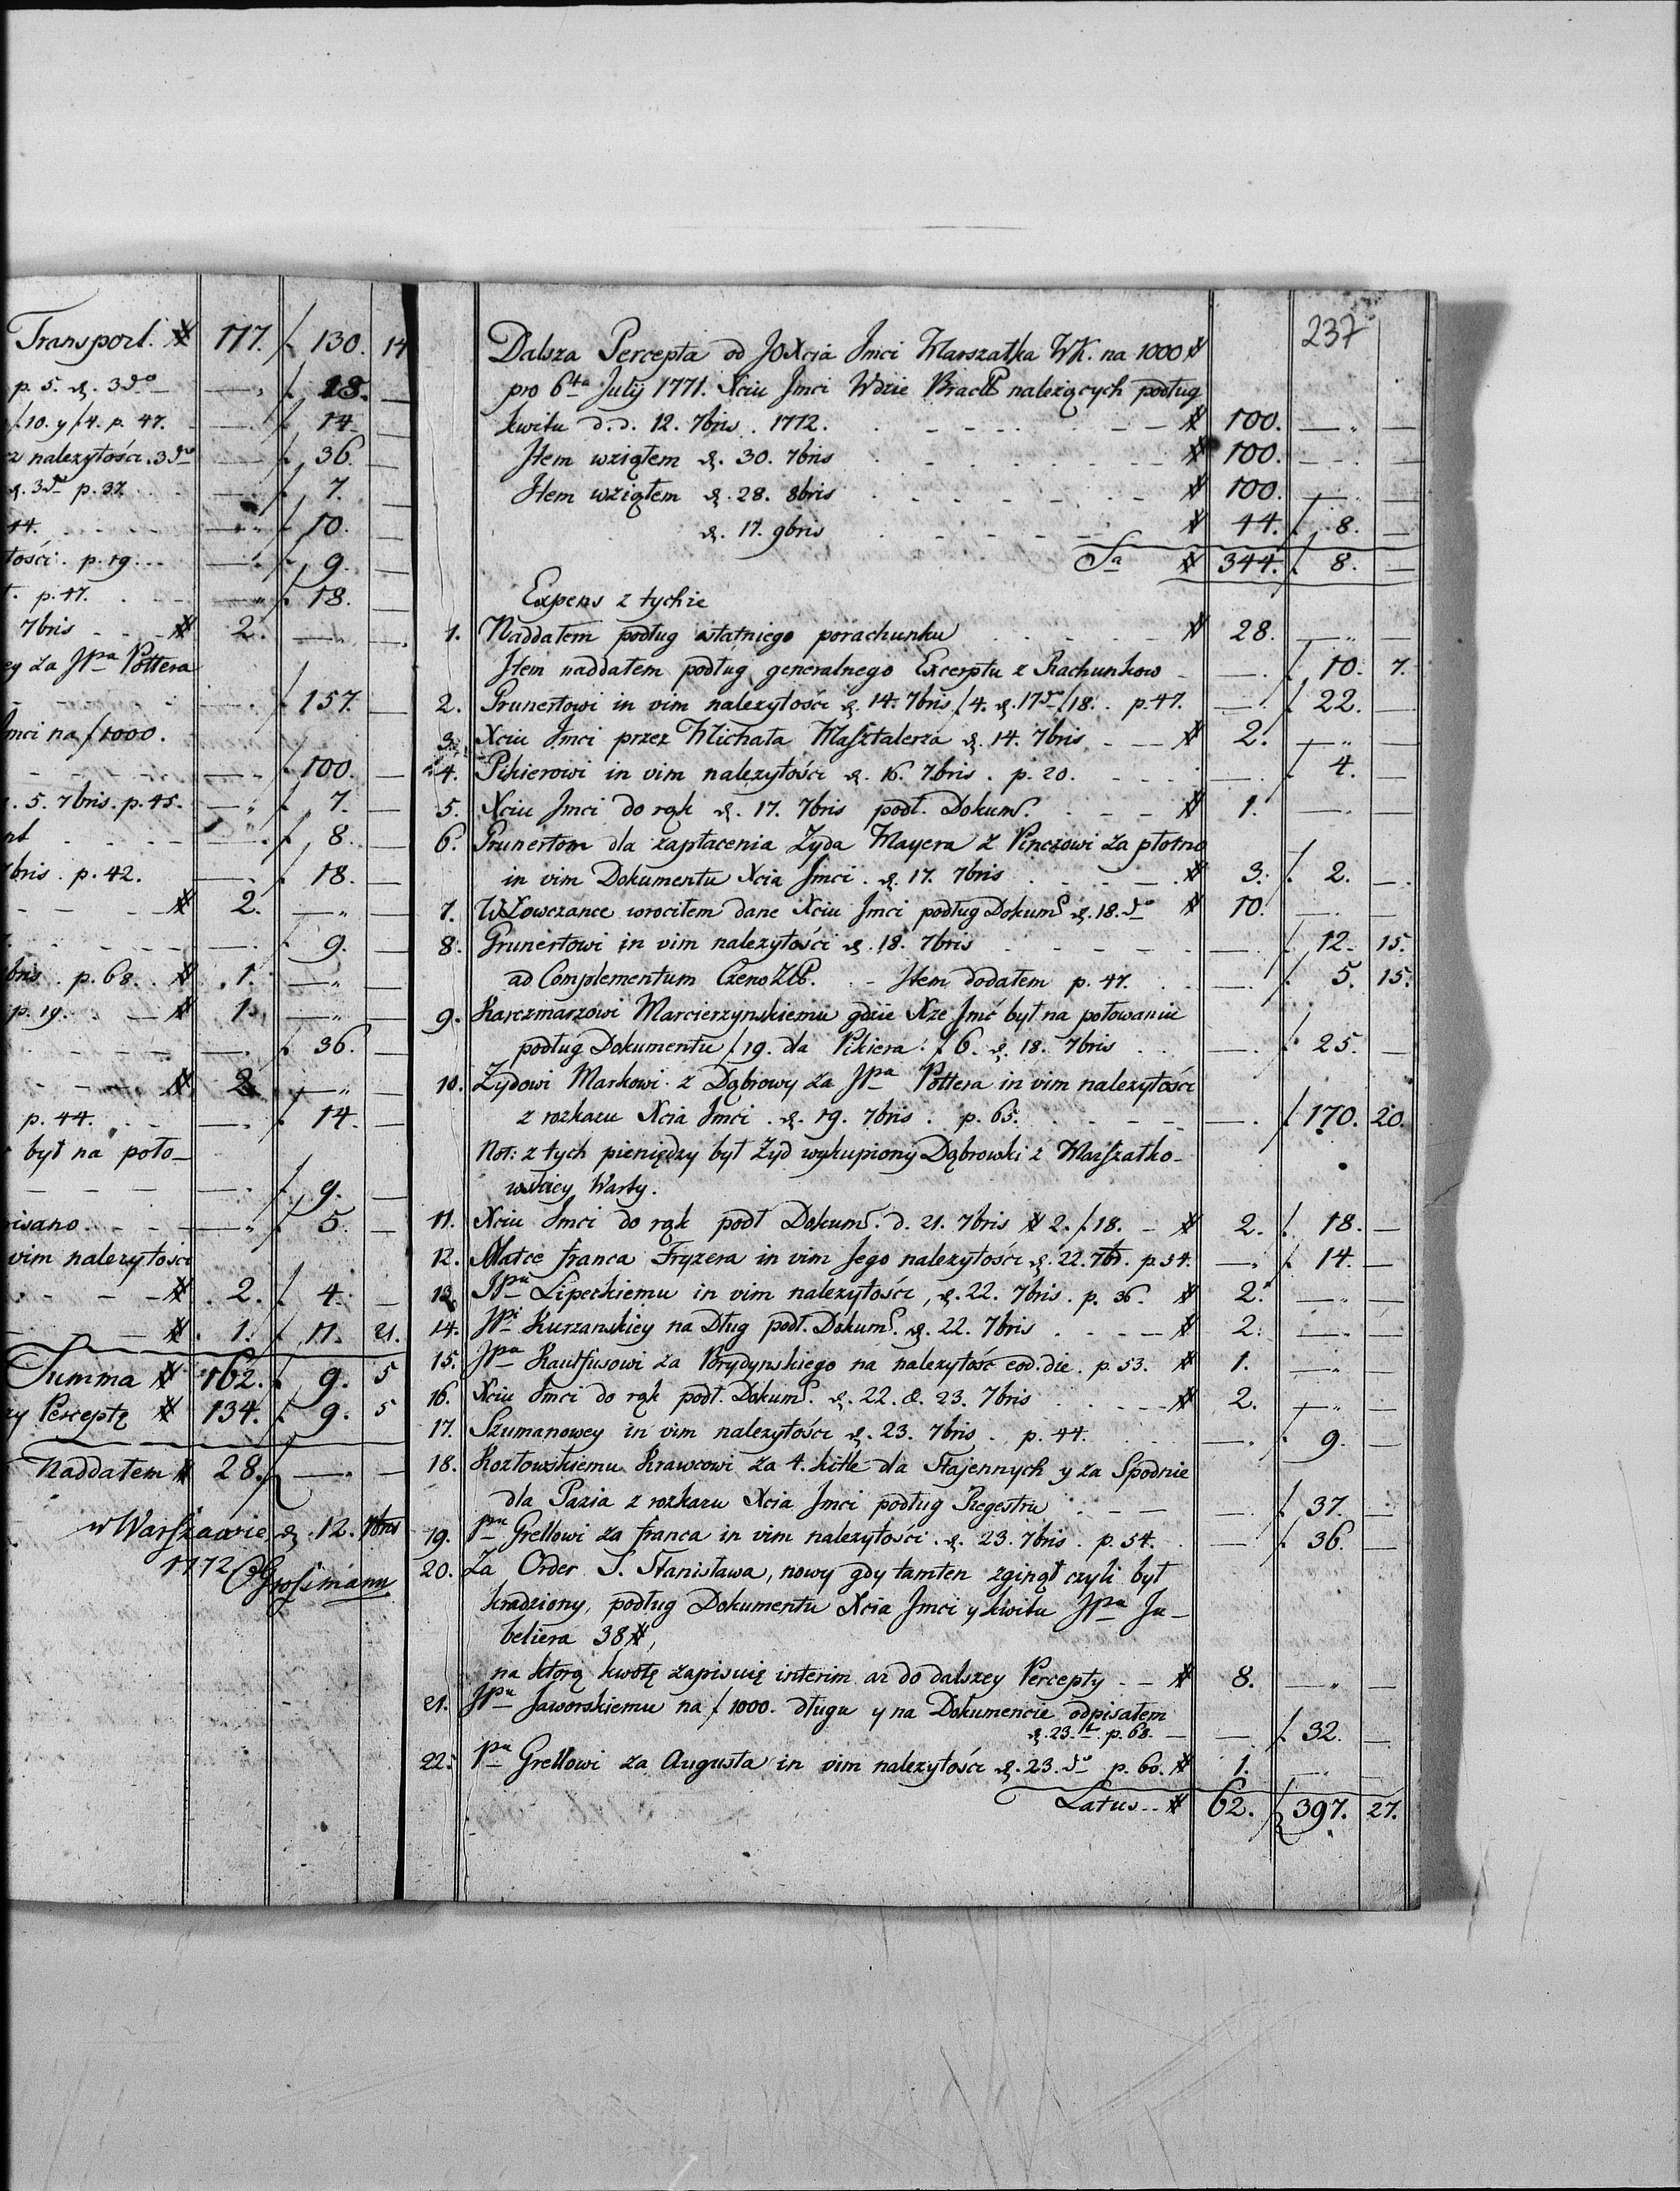 Transport. # 117. f. 130. 14
p. 5. d. 3 do — f. 18. —
f. 10. y f. 4. p. 47. — f. 14. —
z należytości. 3 do — f. 36. —
d. 3 do p. 37. — f. 7. —
44. — f. 10. —
tości. p. 19. — f. 9. —
p. 47. — f. 18. —
7bris — # 2. —
ey za JPa Pottera
— f. 157. —
Imci na f. 1000.
— f. 100. —
5. 7bris. p. 45. — f. 7. —
— f. 8. —
7bris. p. 42. — f. 18. —
— # 2. —
— f. 9. —
bris. p. 68. # 1. —
p. 19. — # 1. —
— f. 36. —
— # 2 —
p. 44. — f. 14. —
był na poło-
— f. 9. —
isano. — f. 5. —
vim nalezytosci
— # 2. f. 4. —
— # 1. f. 11. 21.
Summa # 162. f. 9. 5
zy Perceptę # 134. f. 9. 5
Naddałem # 28. —
w Warszawie d. 12. 7bris
1772 Grossmann
237
Dalsza Percepta od JOXcia Imci Marszałka WK. na 1000 #
pro 6ta July 1771. Xciu Imci Wdzie Bracł należących podług
kwitu d.d. 12. 7bris. 1772. # 100. —
Item wziąłem d. 30. 7bris # 100. —
Item wziąłem d. 28. 8bris # 100. —
d. 17. 9bris # 44. f. 8. —
Sa # 344. f. 8. —
Expens z tychże
1. Naddałem podług ostatniego porachunku # 28. —
Item naddałem podług generalnego Excerptu z Rachunkow — f. 10. 7.
2. Grunertowi in vim należytości d. 14. 7bris f. 4. d. 17 do f. 18. p. 47. — f. 22. —
3. Xciu Imci przez Michała Masztalerza d. 14. 7bris — # 2. —
4. Pikierowi in vim należytości d. 16. 7bris. p. 20. — f. 4. —
5. Xciu Imci do rąk d. 17. 7bris podł. Dokum. — # 1. —
6. Grunertom dla zapłacenia Zyda Mayera z Pinczowi za płotno
in vim Dokumentu Xcia Imci. d. 17. 7bris # 3. f. 2. —
7. WŁowczance wrociłem dane Xciu Imci podług Dokum d. 18. do # 10. —
8. Grunertowi in vim należytości d. 18. 7bris — f. 12. 15.
ad Complementum Czeno Złł. - Item dodałem p. 47. — f. 5. 15.
9. Karczmarzowi Marcierzynskiemu gdzie Xze Imć był na polowaniu
podług Dokumentu f. 19. dla Pikiera f. 6. d. 18. 7bris — f. 25. —
10. Żydowi Markowi z Dąbrowy za JPa Pottera in vim należytości
z rozkazu Xcia Imci. d. 19. 7bris. p. 65. — f. 170. 20.
Not: z tych pieniędzy był Żyd wykupiony Dąbrowski z Marszałko-
wskiey Warty.
11. Xciu Imci do rąk podł Dokum. d. 21. 7bris # 2. f. 18. — # 2. f. 18. —
12. Matce franca Fryzera in vim Jego należytości d. 22. 7br. p. 54. — f. 14. —
13. JPu Lipeckiemu in vim należytości, d. 22. 7bris. p. 36. # 2. —
14. JPi Kurzanskiey na Dług podł. Dokum. d. 22. 7bris — # 2. —
15. JPa Kautfusowi za Brydynskiego na należytość eod. die. p. 53. # 1. —
16. Xciu Imci do rąk podł. Dokum. d. 22. & 23. 7bris — # 2. —
17. Szumanowey in vim należytości d. 23. 7bris. p. 44. — f. 9. —
18. Kozłowskiemu Krawcowi za 4. kitle dla Stajennych y za Spodnie
dla Pazia z rozkazu Xcia Imci podług Regestru — f. 37. —
19. Pu Grellowi za franca in vim należytości. d. 23. 7bris. p. 54. — f. 36. —
20. Za Order S. Stanisława, nowy gdy tamten zginął czyli był
kradziony, podług Dokumentu Xcia Imci y kwitu JPa Ju-
beliera 38 #,
na ktorą kwotę zapisuię interim az do dalszey Percepty — # 8. —
21. JPu Jaworskiemu na f. 1000. długu y na Dokumencie odpisałem
d. 23. p. 68. — f. 32. —
22. Pu Grellowi za Augusta in vim należytości d. 23. do p. 60. # 1. —
Latus — # 62. f. 397. 27.